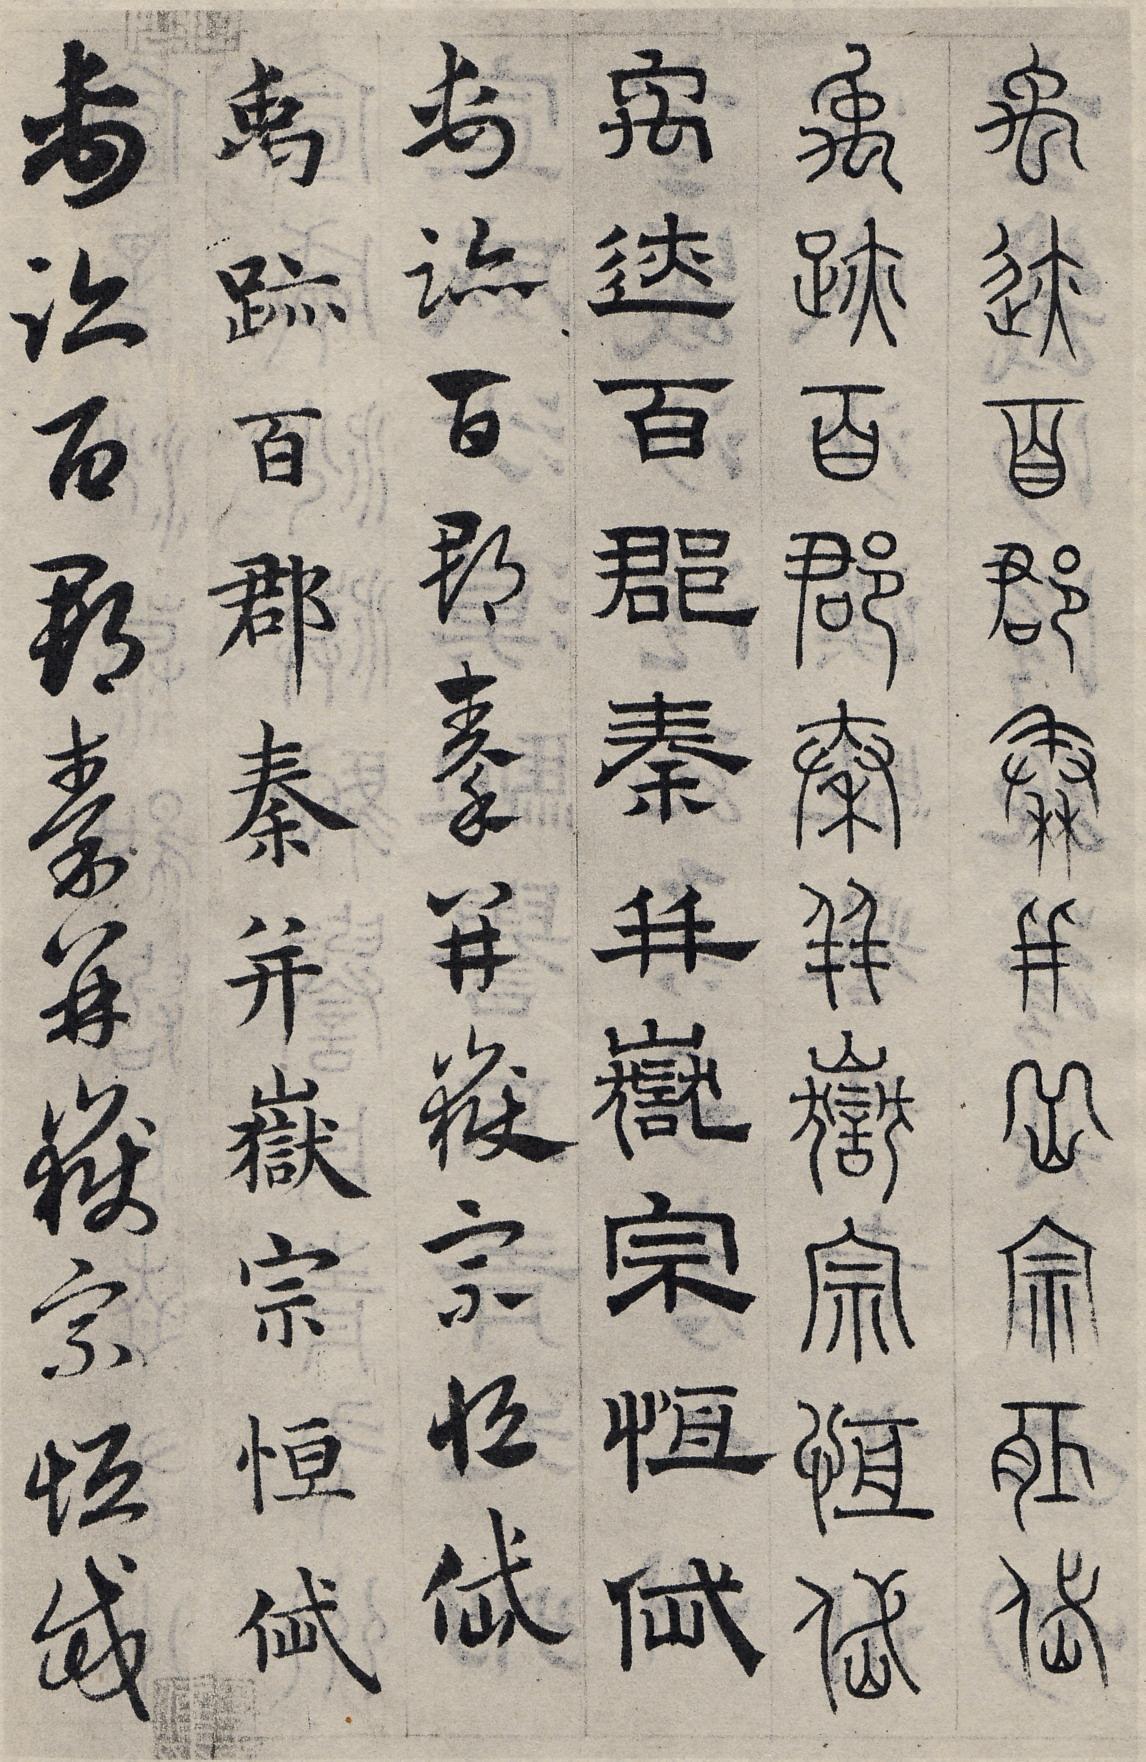 禹迹百郡秦并岳宗恒岱
禹跡百郡秦并嶽宗恒岱
禹迹百郡秦并嶽宗恒岱
禹跡百郡秦并嶽宗恒岱
禹跡百郡秦并嶽宗恒岱
禹跡百郡秦并嶽宗恒岱